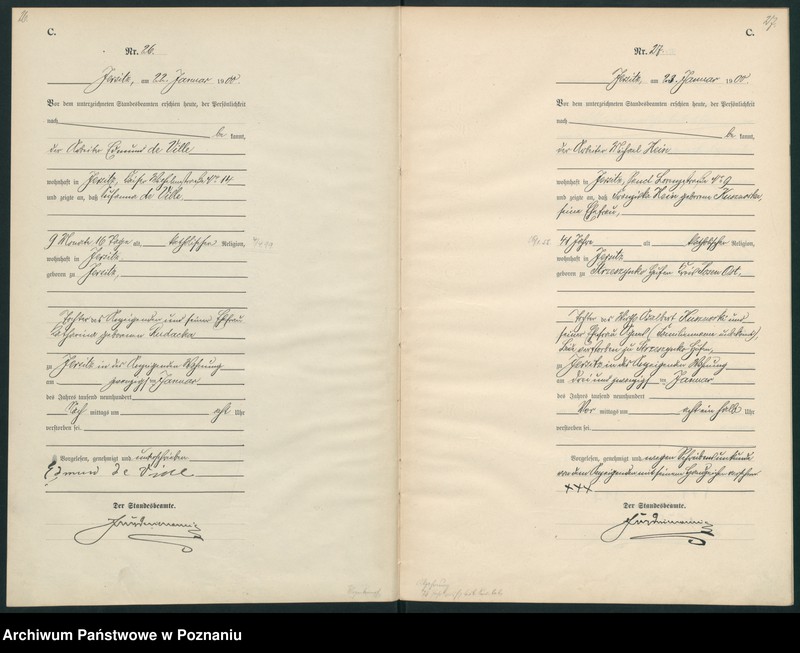 26.
C.
Nr. 26.
Jersitz, am 22. Januar 1900.
Vor dem unterzeichneten Standesbeamten erschien heute, der Persönlichkeit
nach
be kannt,
der Arbeiter Edmund de Ville
wohnhaft in Jersitz, Kaiser Wilhelmstraße № 14
und zeigte an, daß Susanna de Ville,
9 Monate 16 Tage alt, katholischer Religion,
wohnhaft in Jersitz
geboren zu Jersitz,
Tochter des Anzeigenden und seiner Ehefrau
Katharina geborenen
zu Jersitz in des Anzeigenden Wohnung
am zwanzigsten Januar
des Jahres tausend neunhundert
Nach mittags um acht Uhr
verstorben sei.
Vorgelesen, genehmigt und unterschrieben
Edmund de Ville
Der Standesbeamte.
27.
C.
Nr. 27.
Jersitz, am 23. Januar 1900.
Vor dem unterzeichneten Standesbeamten erschien heute, der Persönlichkeit
nach
be kannt,
der Arbeiter Michael Hein
wohnhaft in Jersitz, № 9
und zeigte an, daß Hein geborene
seine Ehefrau,
41 Jahre alt katholischer Religion,
wohnhaft in Jersitz
geboren zu Kreis Posen Ost,
Tochter des und
seiner Ehefrau
beide verstorben zu
zu Jersitz in des Anzeigenden Wohnung
am drei und zwanzigsten Januar
des Jahres tausend neunhundert
Vor mittags um acht ein halb Uhr
verstorben sei.
Vorgelesen, genehmigt und wegen Schreibensunkunde
von dem Anzeigenden mit seinem Handzeichen versehen
+++
Der Standesbeamte.
Archiwum Państwowe w Poznaniu